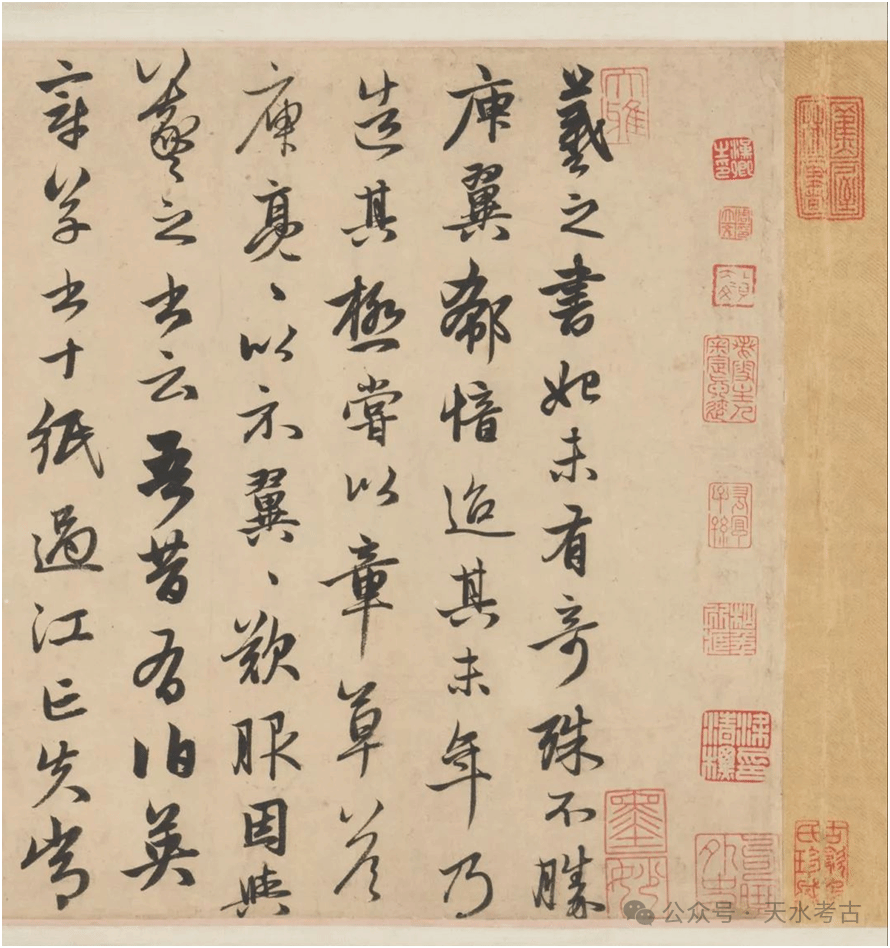 羲之書始未有奇殊不勝
庾翼郗愔迨其末年乃
造其極嘗以章草答
庾亮、以示翼、歎服因與
羲之書云吾昔有伯英
章草書十紙過江亡失常
大雅
墨妙
公众号 · 天水考古